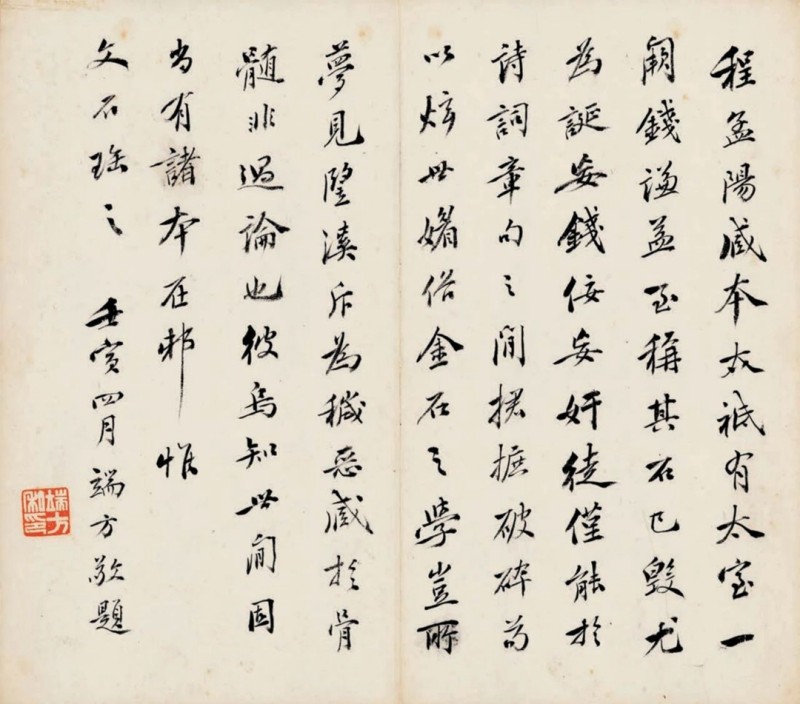 程孟陽藏本亦祇有太室一
闕錢謙益至稱其石已毀尤
為誕妄錢佞妄奸徒僅能於
詩詞章句之間捃摭破碎為
以炫世媚俗金石之學豈所
夢見朢溪斥為穢惡藏於骨
髓非過論也彼烏知世間固
尚有諸本在邪惟
文石珤之 壬寅四月端方敬題
端方私印